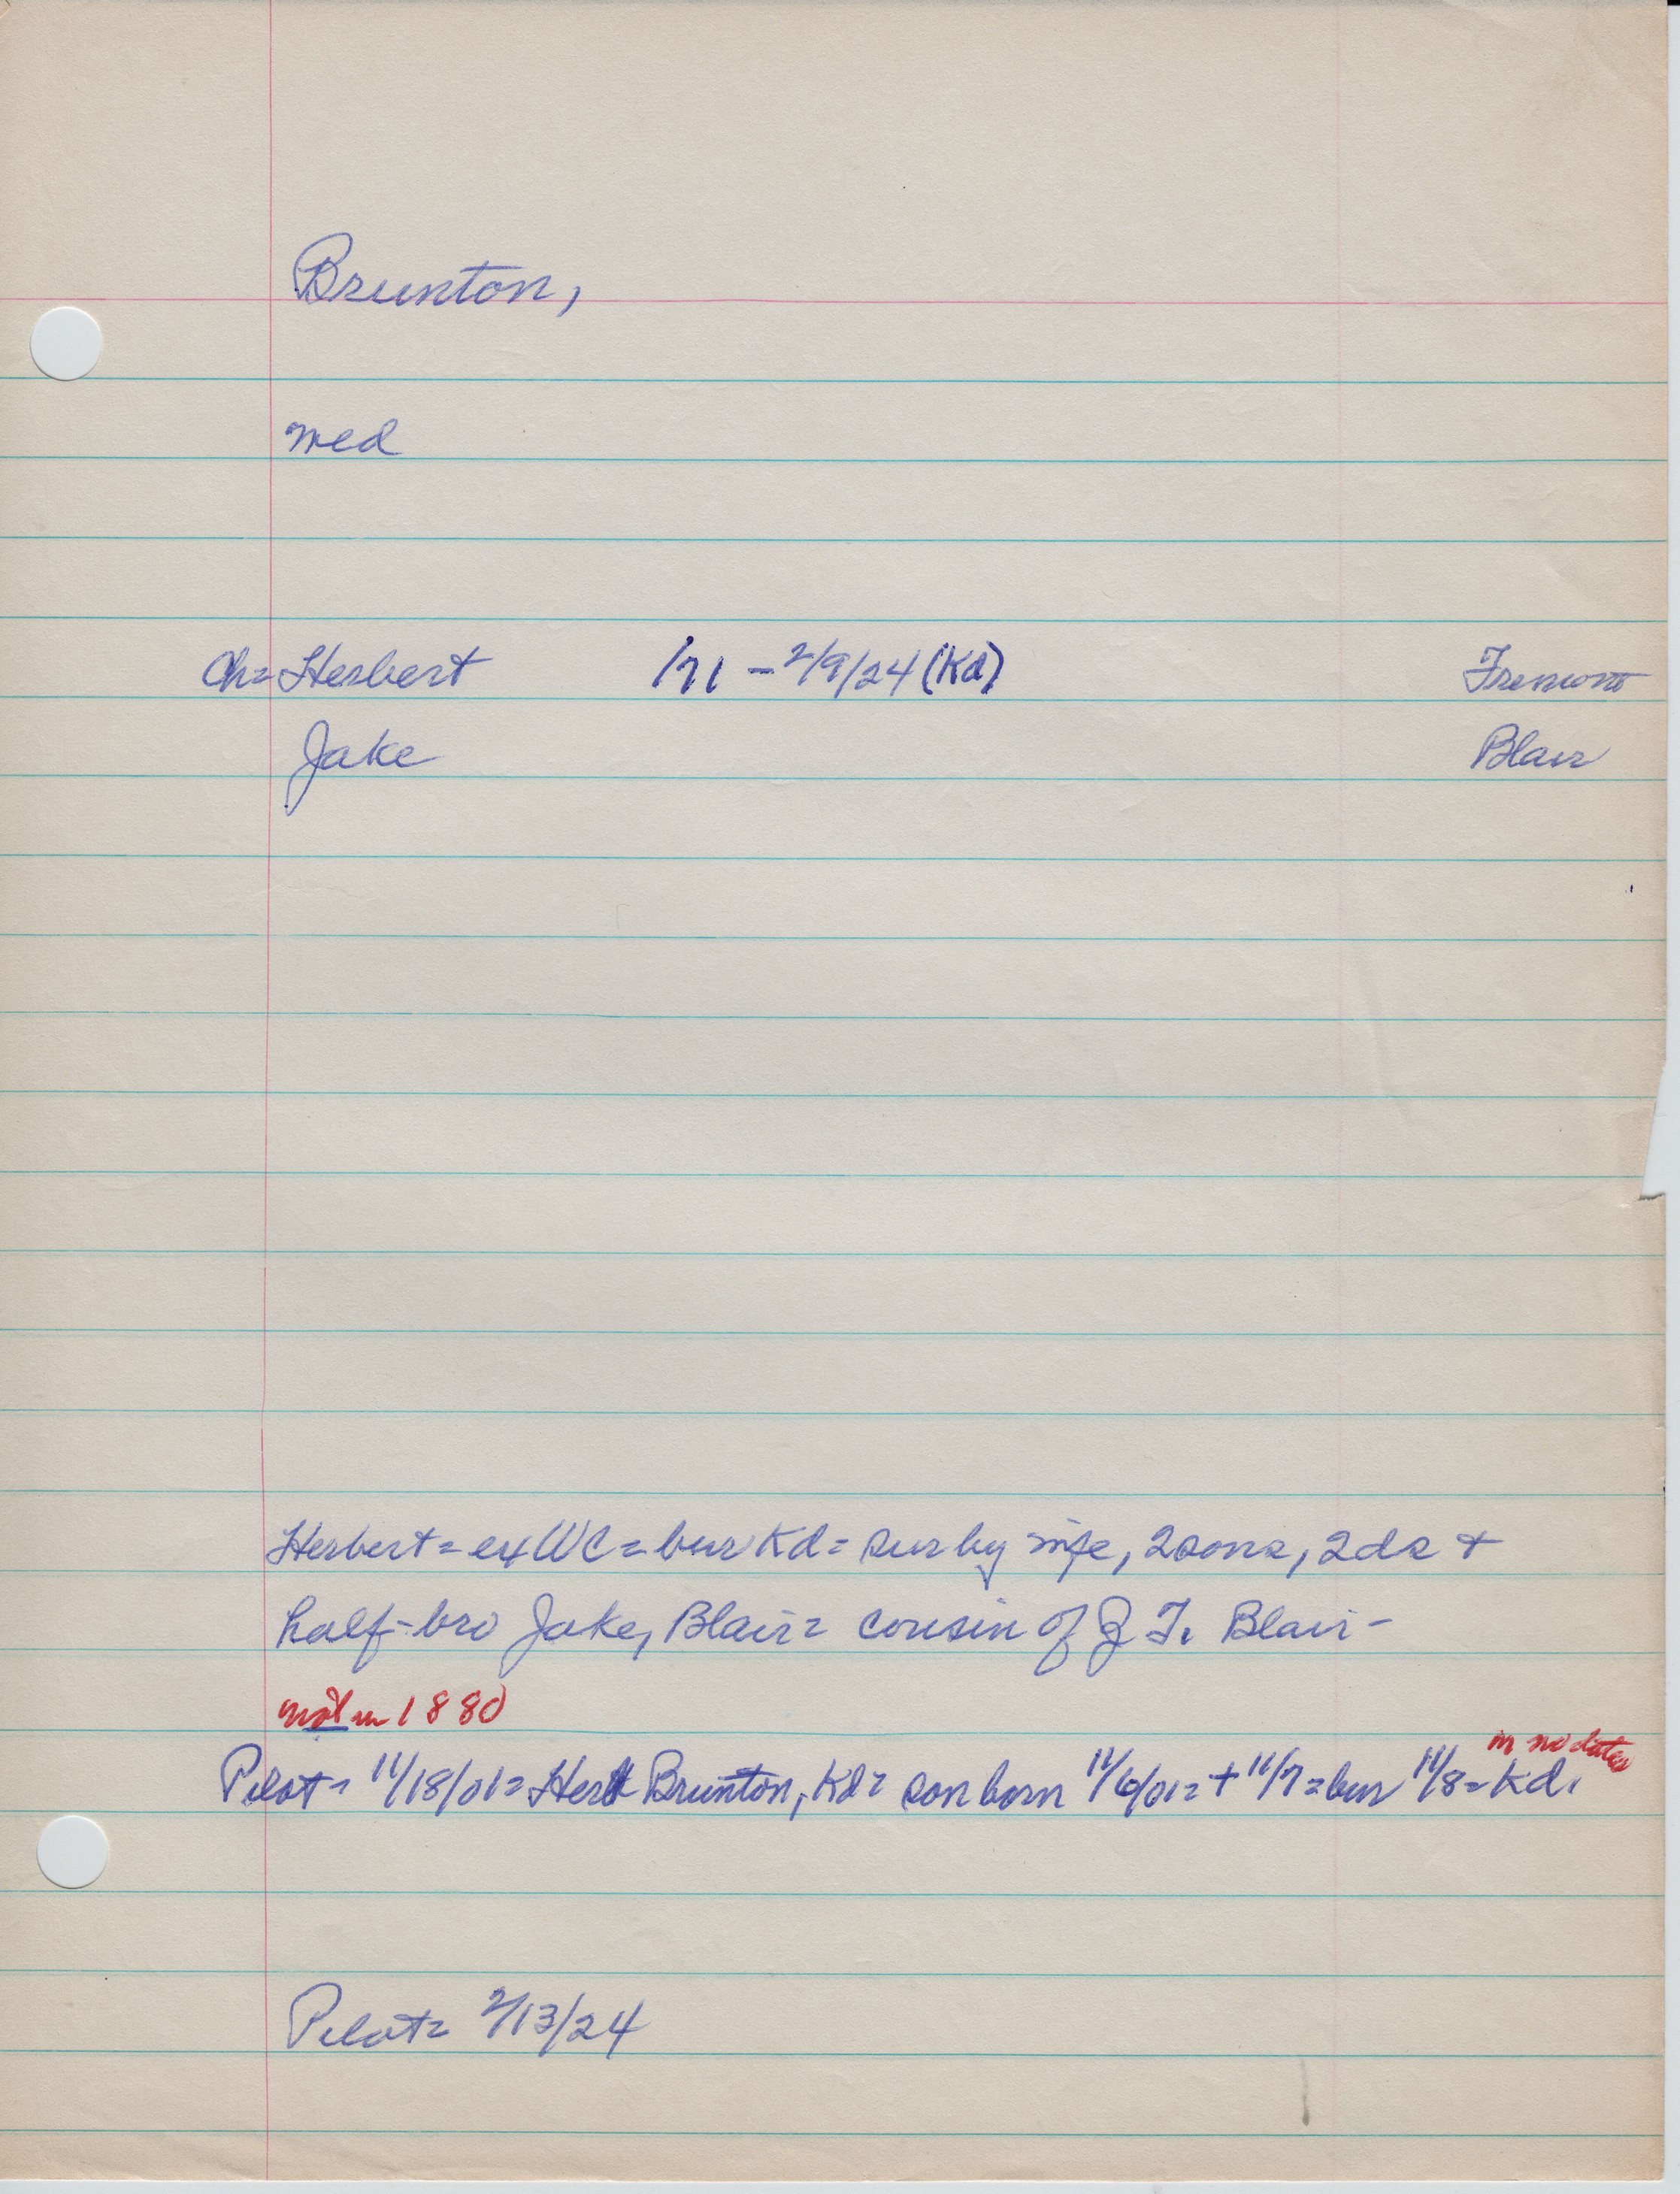 Brunton,
med
Ch= Herbert /71 - 2/9/24 (Kd) Fremont
Jake Blair
Herbert = ex WC = bur Kd = sur by wife, 2 sons, 2 ds +
half-bro Jake, Blair = cousin of J. F. Blair -
not in 1880
in no dates
Pilot = 11/18/01 = Herb Brunton, Kd = son born 11/6/01 = + 11/7 = bur 11/8 = Kd.
Pilot = 2/13/24